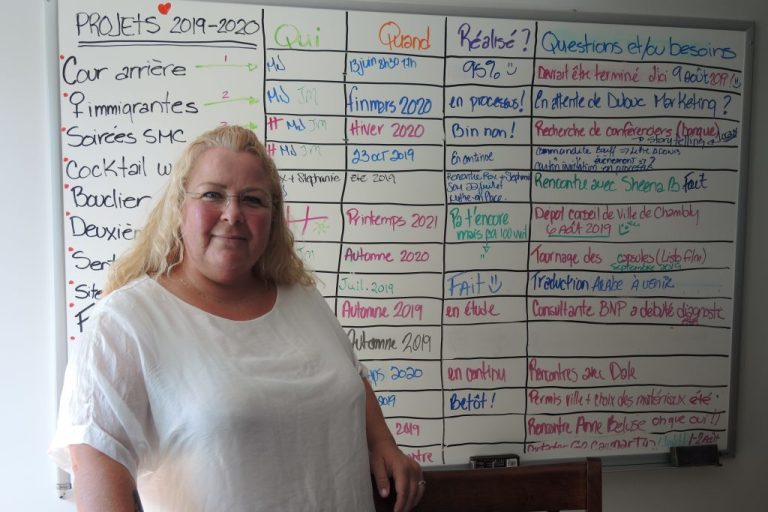 PROJETS 2019-2020
Qui
Quand
Réalisé?
Questions et/ou besoins
Cour arrière
1
MJ
13 juin 8h30 17h
95%
Devrait être terminé d'ici 9 août 2019!
♀ immigrantes
2
MJ JM
fin mars 2020
en processus!
En attente de Dubuc Marketing?
Soirées SMC
MJ JM
Hiver 2020
Bin non!
Recherche de conférenciers (banque)
storytelling
Cocktail
MJ JM
23 oct 2019
En continue
Bouclier
+ Stéphanie
été 2019
Rencontre avec Sheena B Fait
Deuxiè
Printemps 2021
Pa t'encore
mais pa 100 wat
Dépôt conseil de ville de Chambly
6 Août 2019
Sent
JM
Automne 2020
Tournage des capsules (Listo film)
septembre 2019
Site
Juil. 2019
FAit
Traduction Arabe à venir
F
Automne 2019
en étude
Consultante BNP a débuté diagnostic
Automne 2019
2020
en continu
Rencontres avec Dale
2019
Betôt!
Permis ville + choix des matériaux été.
2019
Rencontre Anne Beluse oh que oui!!